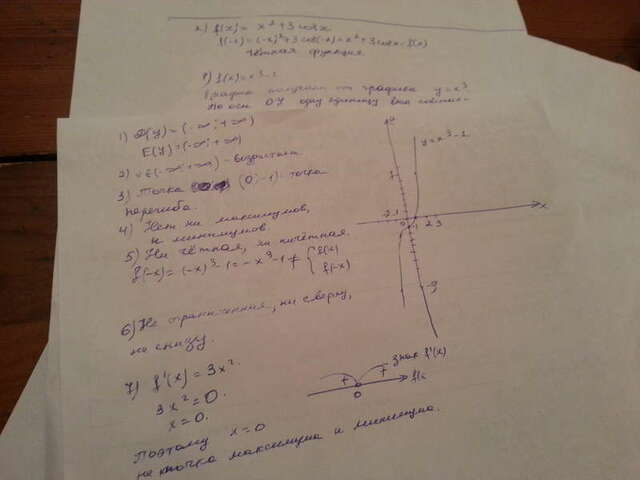 2) f(x) = x² + 3 cos x
f(-x) = (-x)² + 3 cos(-x) = x² + 3 cos x = f(x)
чётная функция
8) f(x) = x³ - 1
График получает от графика y = x³
По оси OY одну единицу вниз
1) D(y) = (-∞; +∞)
E(y) = (-∞; +∞)
2) (-∞; +∞) - возрастает
3) Точка (0; -1) - точка
перегиба.
4) Нет ни максимумов,
и минимумов
5) Ни чётная, ни нечётная.
f(-x) = (-x)³ - 1 = -x³ - 1 ≠ { f(x)
f(-x)
6) Не ограниченная, ни сверху,
не снизу.
7) f'(x) = 3x².
3x² = 0.
x = 0.
Поэтому x = 0
не точка максимума и минимума.
y = x³ - 1
x
-2 -1 0 1 2 3
-9
знак f'(x)
+ +
0